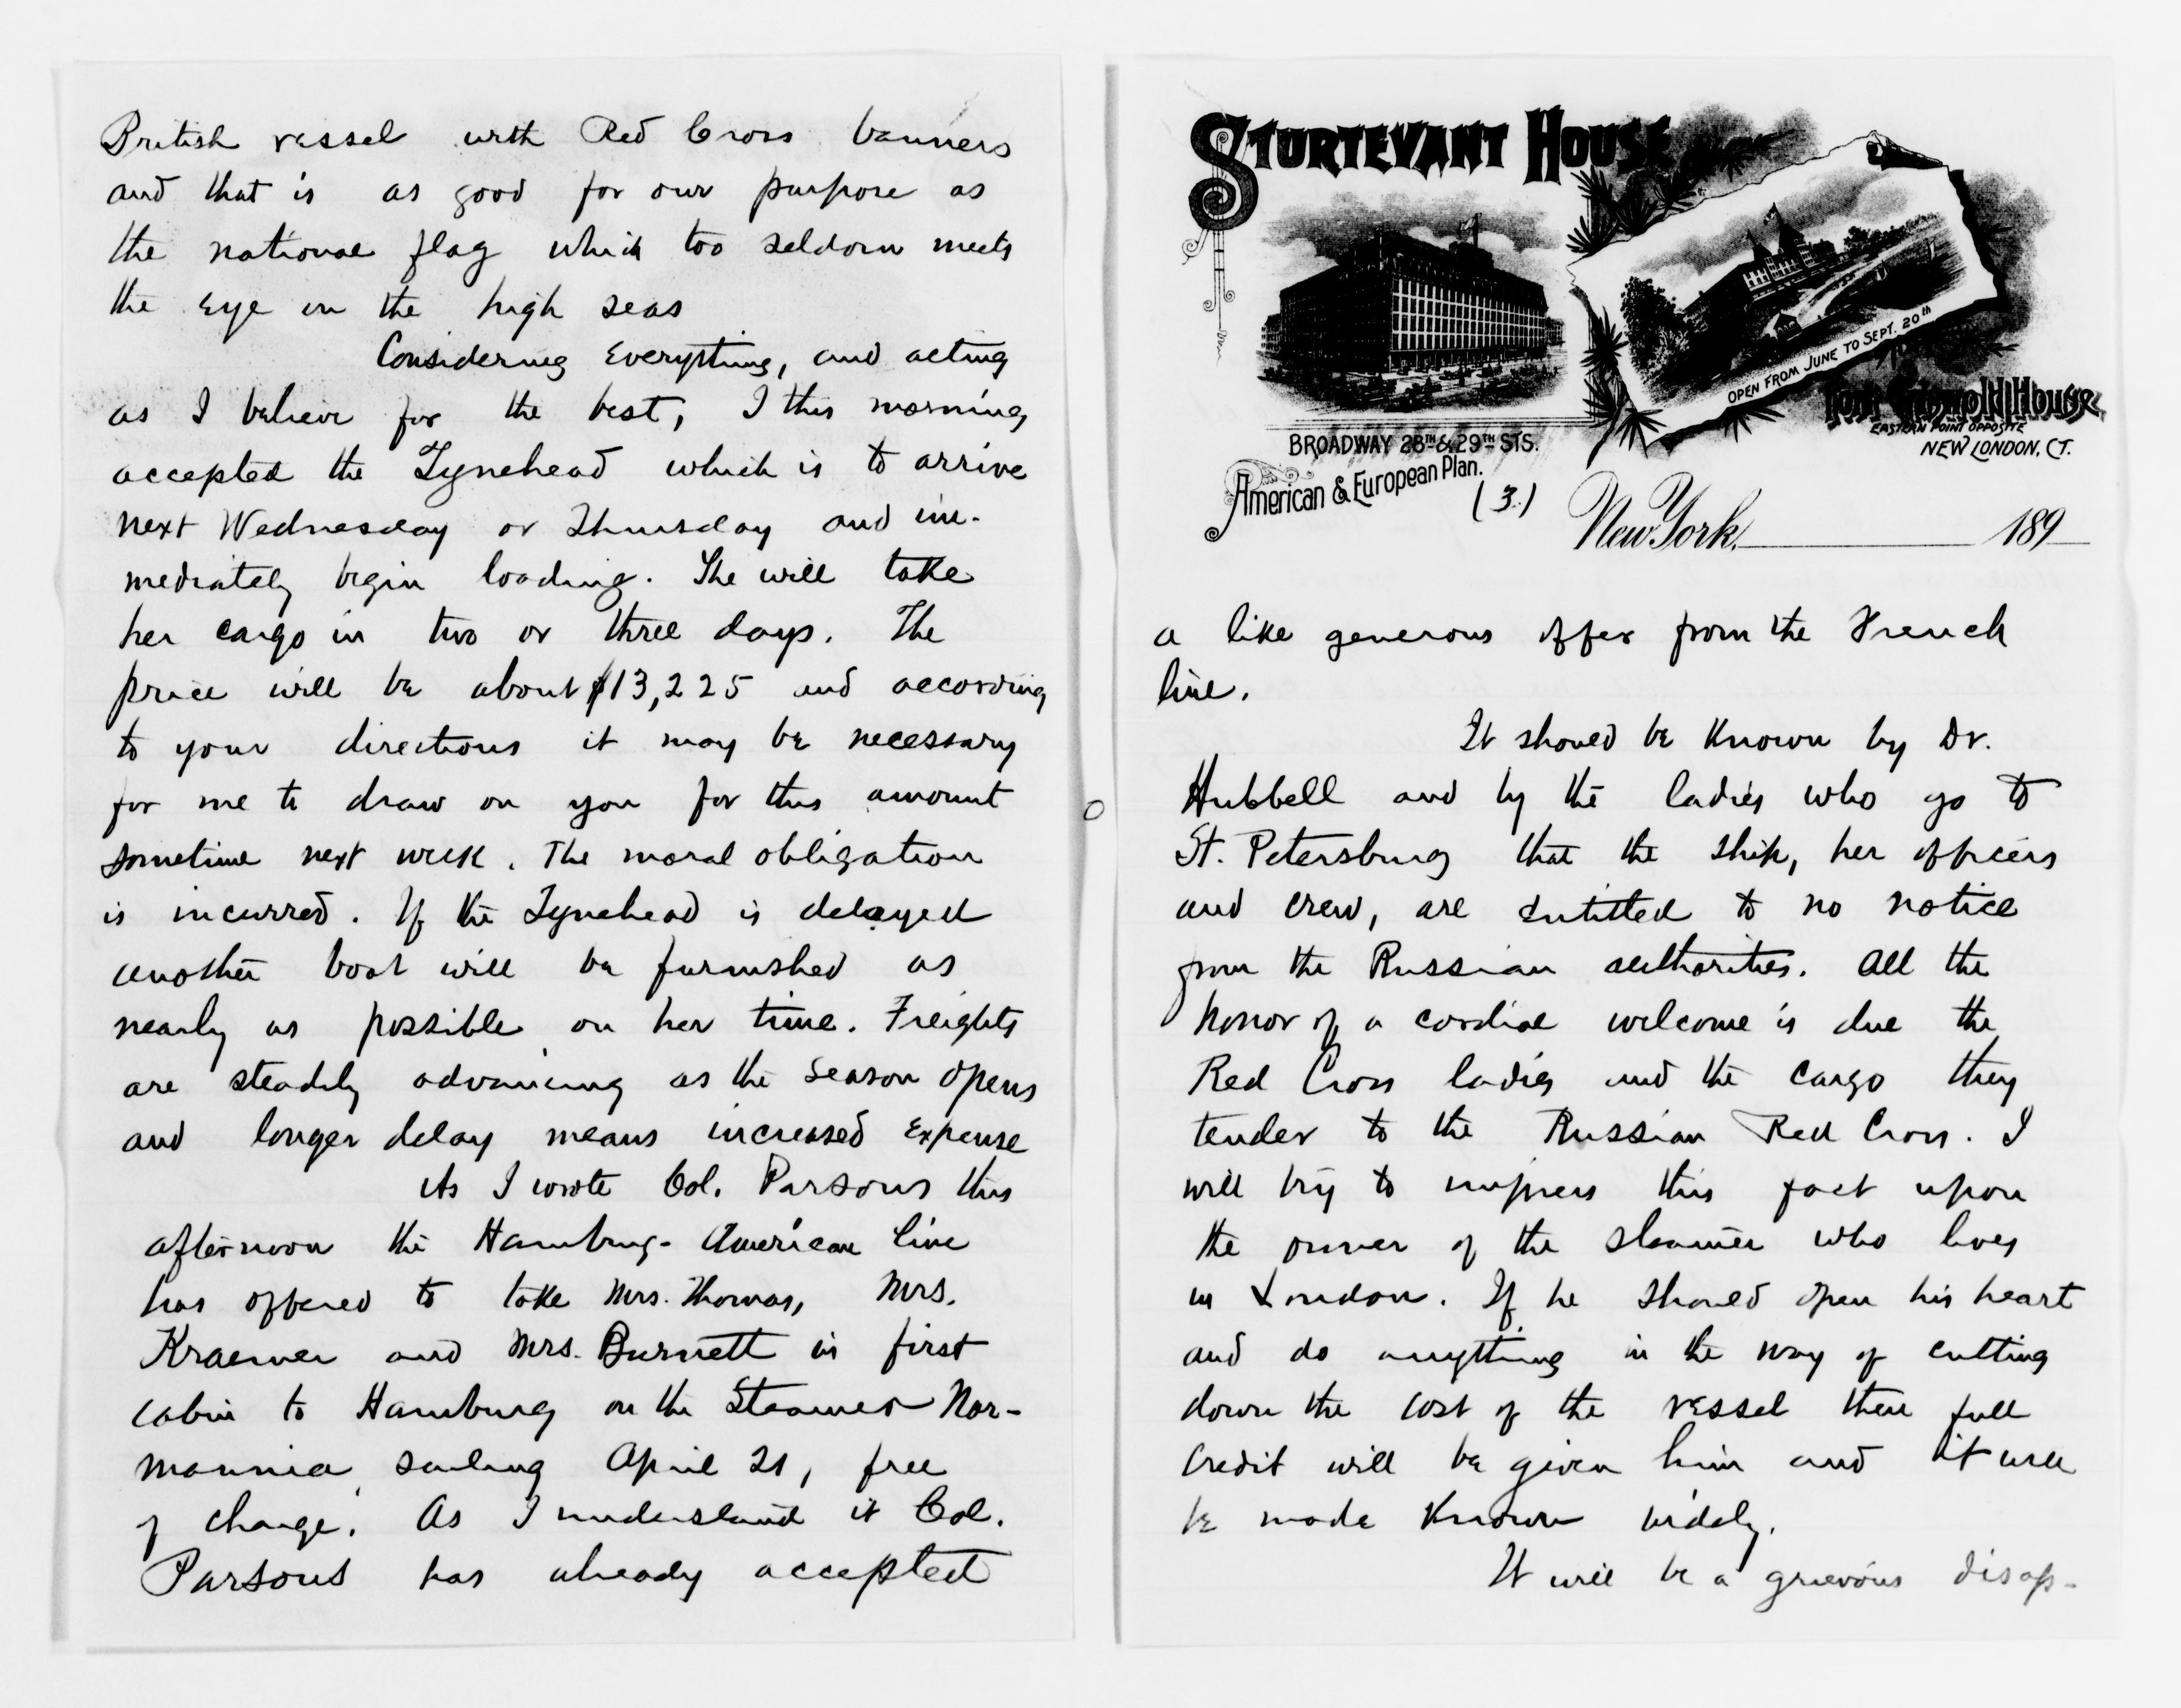 British vessel with Red Cross banners
and that is as good for our purpose as
the national flag which too seldom meets
the eye on the high seas
Considering Everything, and acting
as I believe for the best, I this morning
accepted the Tynehead which is to arrive
next Wednesday or Thursday and im-
mediately begin loading. She will take
her cargo in two or three days. The
price will be about $13,225 and according
to your directions it may be necessary
for me to draw on you for this amount
sometime next week. The moral obligation
is incurred. If the Tynehead is delayed
another boat will be furnished as
nearly as possible on her time. Freights
are steadily advancing as the season opens
and longer delay means increased expense
As I wrote Col. Parsons this
afternoon the Hamburg-American line
has offered to take Mrs. Thomas, Mrs.
Kraemer and Mrs. Burnett in first
cabin to Hamburg on the Steamer Nor-
mannia sailing April 21, free
of charge. As I understand it Col.
Parsons has already accepted
STURTEVANT HOUSE
OPEN FROM JUNE TO SEPT. 20th
FORT GRISWOLD HOUSE,
EASTERN POINT OPPOSITE
NEW LONDON, CT.
BROADWAY 28TH & 29TH STS.
American & European Plan.
(3.)
New York, 189
a like generous offer from the French
line.
It should be known by Dr.
Hubbell and by the ladies who go to
St. Petersburg that the ship, her officers
and crew, are entitled to no notice
from the Russian authorities. All the
honor of a cordial welcome is due the
Red Cross ladies and the cargo they
tender to the Russian Red Cross. I
will try to impress this fact upon
the owner of the steamer who lives
in London. If he should open his heart
and do anything in the way of cutting
down the cost of the vessel then full
credit will be given him and it will
be made known widely.
It will be a grievous disap-